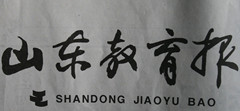 山东教育报
SHANDONG JIAOYU BAO